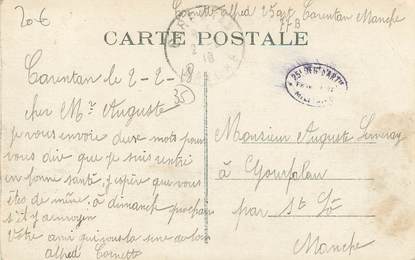 20-6
Cornette alfred 25 art Carentan Manche
CARTE POSTALE
Carentan le 2-2-18
35
cher Mr Auguste
je vous envoie deux mots pour
vous dire que je suis rentré
en bonne santé, j'espère que vous
êtes de même, à dimanche prochain
s'il y a moyen
Votre ami qui vous la main de loin
alfred Cornette
Monsieur Auguste
à Gourfaleur
par St Lô
Manche